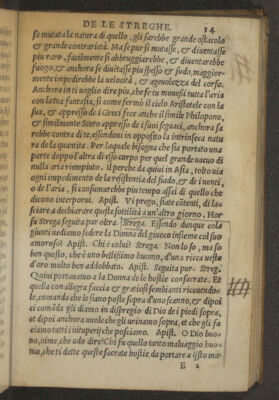 DE LE STREGHE. 34
sa mutata la natura di quello, gli sarebbe grande ostacolo
& grande contrarietà. Ma se pur si mutasse, & diuentasse
piu raro, facilmente si abbruggiarebbe, & diuentarebbe
fuogo, & anchora se diuētasse piu spesso & sodo, maggior-
mente impedirebbe la velocità, & ageuolezza del corso.
Anchora io ti uoglio dire piu, che se tu mouessi tutta l'aria
con la tua fantasia, sì come fermò il cielo Aristotele con la
sua, & appresso de i Greci fece anche il simile Philopono,
& similmente Scoto appresso de i suoi seguaci, anchora sa
rebbe contra dite, essendoui in opposito la intrinseca natu
ra de la quantità. Per laquale bisogna che sia portato una
parte doppo l'altra di esso corpo per quel grande uacuo di
nulla aria riempiuto. Il perche da quiui in Asia, tolto uia
ogni impedimento de la resistentia del fiado, & de i uenti,
o de l'aria, si consumarebbe piu tempo assai di quello che
dicono interporui. Apist. Vi prego, siate cōtenti, di la-
sciare a dechiarare queste sottilità a un'altro giorno. Hor
su Strega seguita pur oltra. Strega. Essendo dunque cola
giunti uediamo sedere la Donna del giuoco insieme col suo
amoroso. Apist. Chi è colui? Strega. Non lo so, ma so
ben questo, che è uno bellissimo huomo, d'una ricca ueste
d'oro molto ben addobbato. Apist. Seguita pur. Streg.
Quiui portauamo a la Donna de le hostie consacrate. Et
quella con allegra faccia & gratiosi sembianti riceuendo-
le, comanda che le siano poste sopra d'uno scanno, & dipoi
ci comāda gli diamo in dispregio di Dio de i piedi sopra,
et dipoi anchora uuole che gli urinamo sopra, et che gli fa
ciamo tutti i uituperij che possiamo. Apist. O Dio buo-
no, oime, che odo dire? Chi fu quello tanto maluaggio huo
mo, che ti dette queste sacrate hostie da portare a q̄sto ma-
E 2